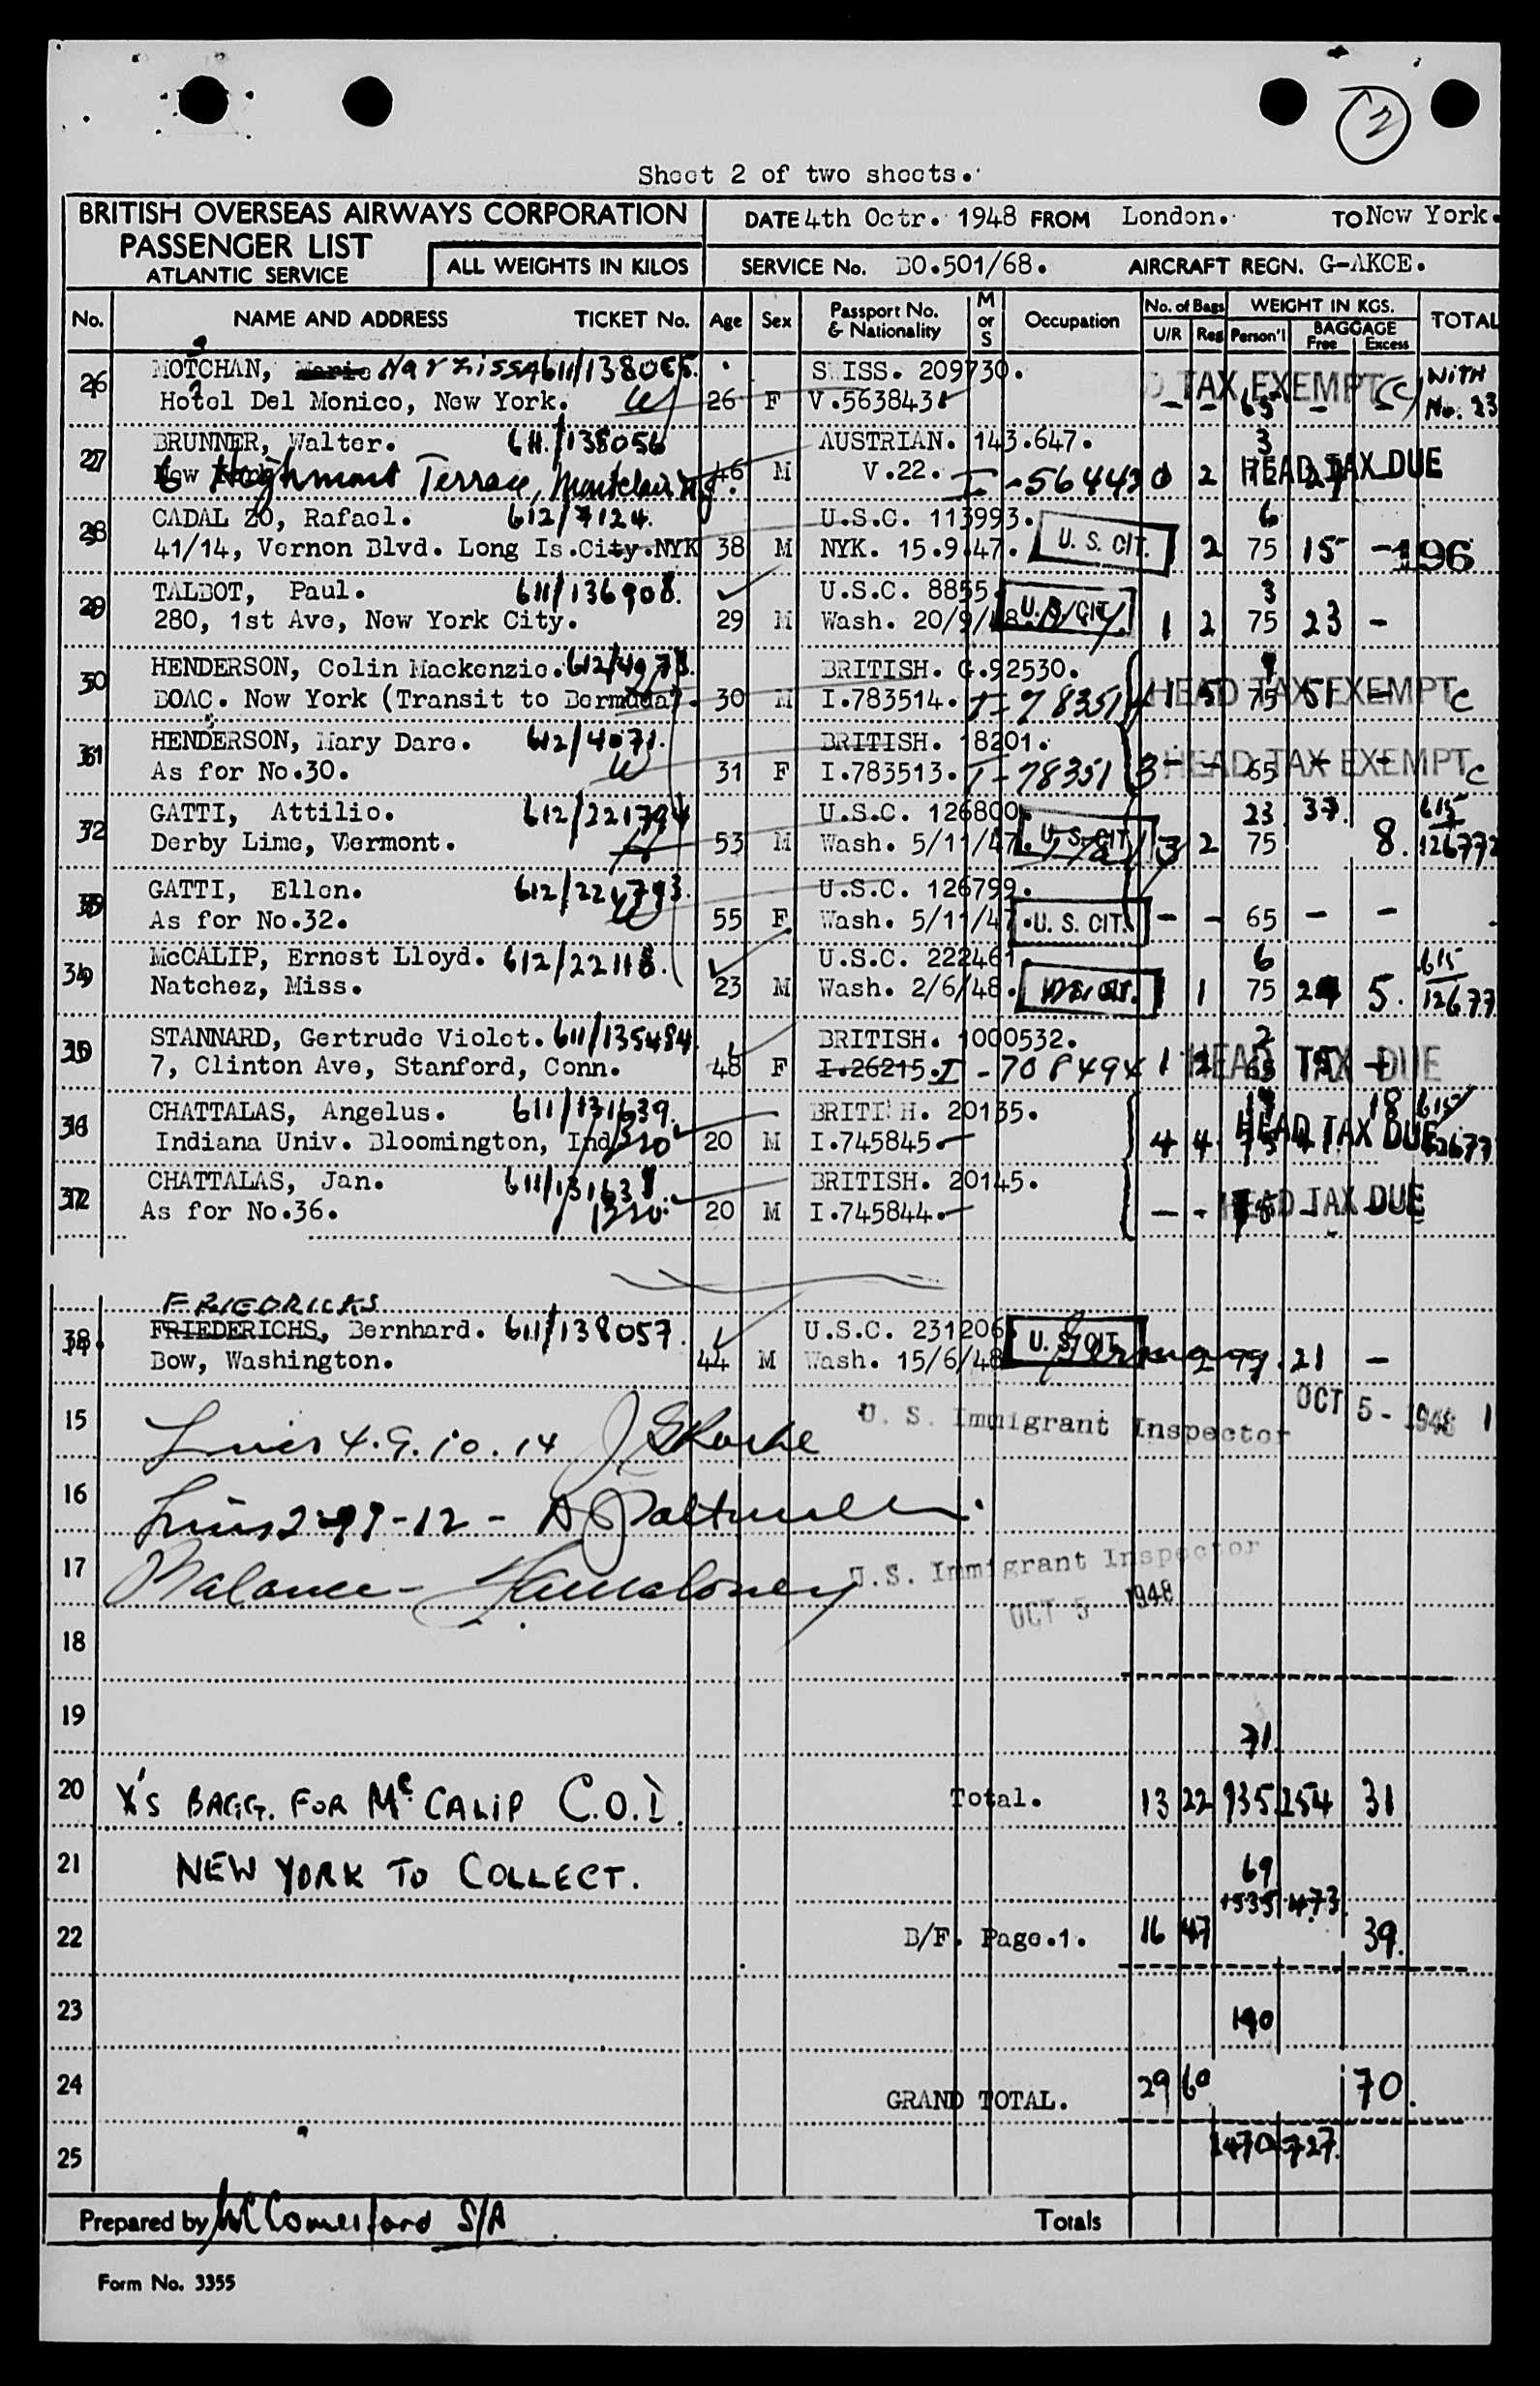 2
Sheet 2 of two sheets.
BRITISH OVERSEAS AIRWAYS CORPORATION
PASSENGER LIST
ATLANTIC SERVICE
ALL WEIGHTS IN KILOS
DATE 4th Octr. 1948 FROM London. TO New York.
SERVICE No. BO.501/68. AIRCRAFT REGN. G-AKCE.
No. NAME AND ADDRESS TICKET No. Age Sex Passport No. & Nationality M or S Occupation No. of Bags U/R Reg WEIGHT IN KGS. Person'l BAGGAGE Free Excess TOTAL
26 MOTCHAN, Marie Narzissa 611/138055. SWISS. 209730. HEAD TAX EXEMPT C WITH
Hotel Del Monico, New York. 26 F V.563843 - - 65 - - No. 23
27 BRUNNER, Walter. 611/138056 AUSTRIAN. 143.647. 3
New Highmont Terrace, Montclair NJ. 46 M V.22. I-564430 2 HEAD TAX DUE
28 CADAL ZO, Rafael. 612/7124. U.S.C. 113993. 6
41/14, Vernon Blvd. Long Is.City.NYK 38 M NYK. 15.9.47. U. S. CIT. 2 75 15 - 196
29 TALBOT, Paul. 611/136908. U.S.C. 8855. 3
280, 1st Ave, New York City. 29 M Wash. 20/9/48. U. S. CIT. 1 2 75 23 -
30 HENDERSON, Colin Mackenzie. 612/4073. BRITISH. G.92530.
BOAC. New York (Transit to Bermuda). 30 M I.783514. I-78351 1 5 75 51 - HEAD TAX EXEMPT C
31 HENDERSON, Mary Dare. 612/4071. BRITISH. 18201.
As for No.30. 31 F I.783513. I-78351 3 - - 65 - - HEAD TAX EXEMPT C
32 GATTI, Attilio. 612/221794 U.S.C. 126800. 23 37. 615
Derby Line, Vermont. 53 M Wash. 5/11/47. U. S. CIT. 3 2 75 8. 126772
33 GATTI, Ellen. 612/221793. U.S.C. 126799.
As for No.32. 55 F Wash. 5/11/47. U. S. CIT. - - 65 - -
34 McCALIP, Ernest Lloyd. 612/22118. U.S.C. 222461. 6 615
Natchez, Miss. 23 M Wash. 2/6/48. 1 1 75 24 5. 12677
35 STANNARD, Gertrude Violet. 611/135484. BRITISH. 1000532. 2
7, Clinton Ave, Stanford, Conn. 48 F I.26215. I-708494 1 2 65 15 - HEAD TAX DUE
36 CHATTALAS, Angelus. 611/131639. BRITISH. 20135. 18 615
Indiana Univ. Bloomington, Ind. 20 M I.745845. 4 4 HEAD TAX DUE
37 CHATTALAS, Jan. 611/131638. BRITISH. 20145.
As for No.36. 20 M I.745844. - - HEAD TAX DUE
FRIEDRICKS
38. FRIEDERICHS, Bernhard. 611/138057. U.S.C. 231206.
Bow, Washington. 44 M Wash. 15/6/48 U. S. CIT. Germany 2 21 -
15 Lines 4.9.10.14 U. S. Immigrant Inspector OCT 5 - 1948
16 Lines
17 Balance - U.S. Immigrant Inspector
OCT 5 1948
18
19 71.
20 X's BAGG. FOR McCALIP C.O.D. Total. 13 22 935 254 31
21 NEW YORK TO COLLECT. 69
535 473
22 B/F. Page.1. 16 47 39.
23 190
24 GRAND TOTAL. 29 60 70.
25 1470 727.
Prepared by S/A Totals
Form No. 3355